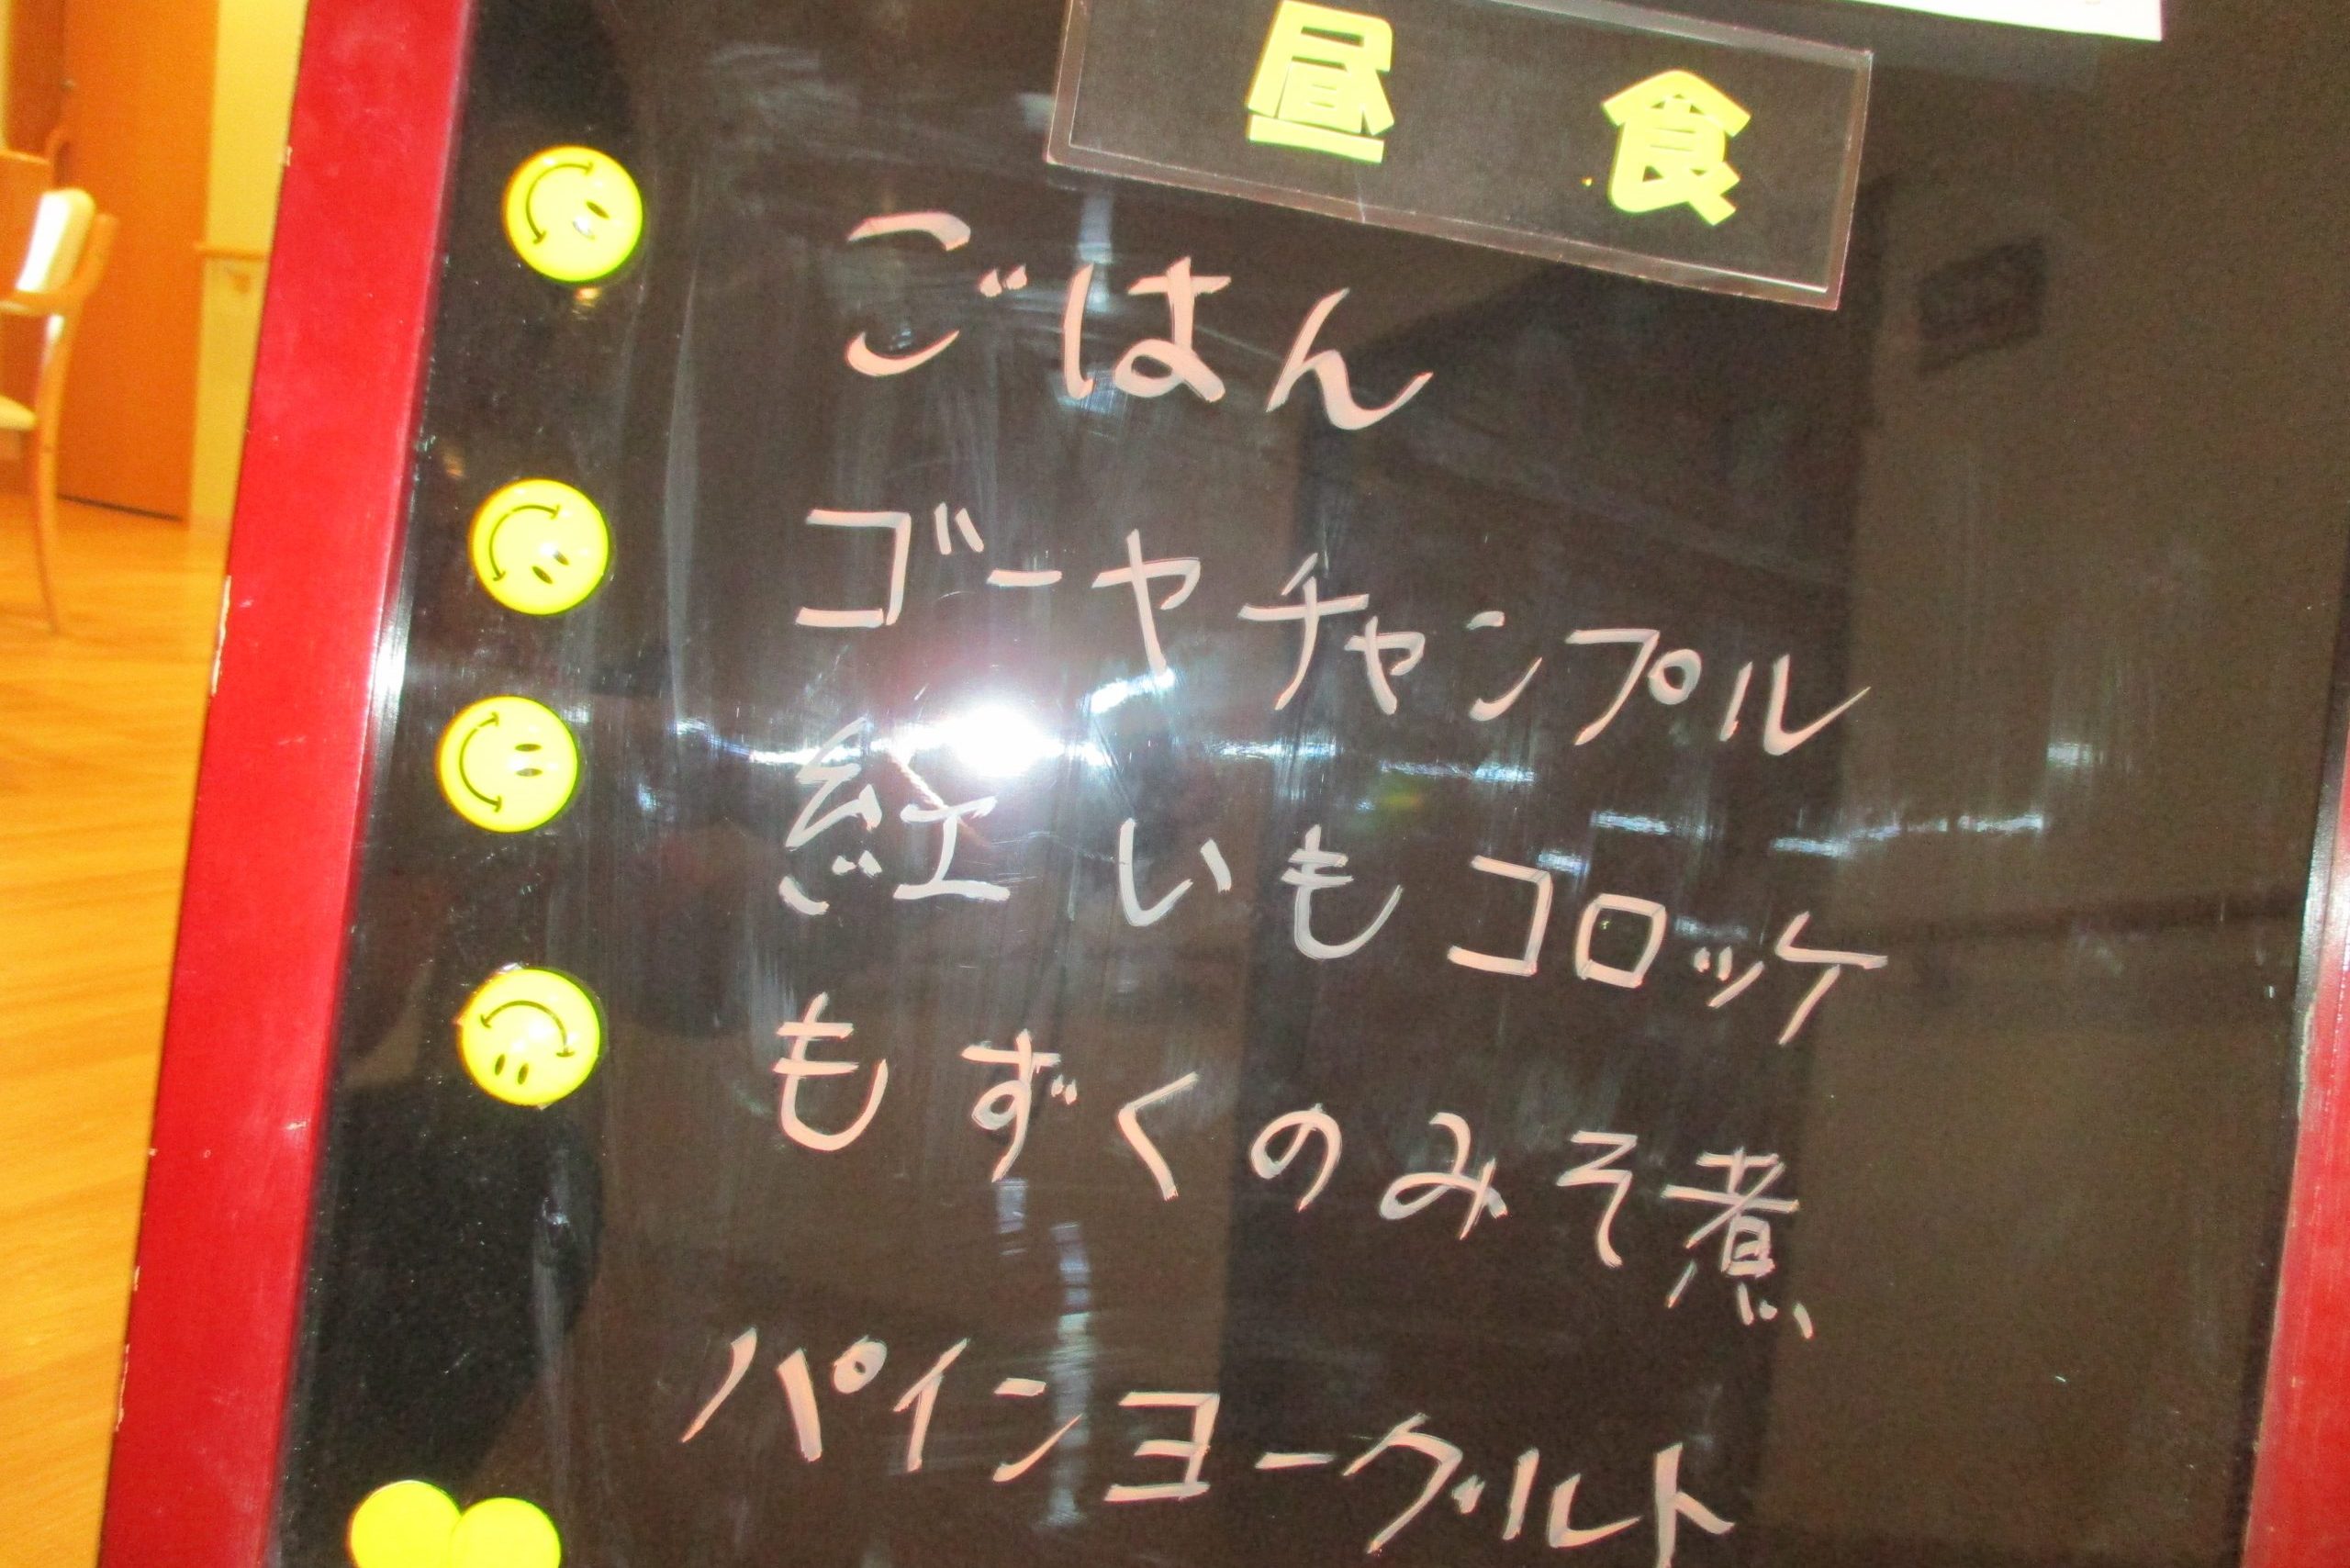 昼食
ごはん
ゴーヤチャンプル
紅いもコロッケ
もずくのみそ煮
パインヨーグルト